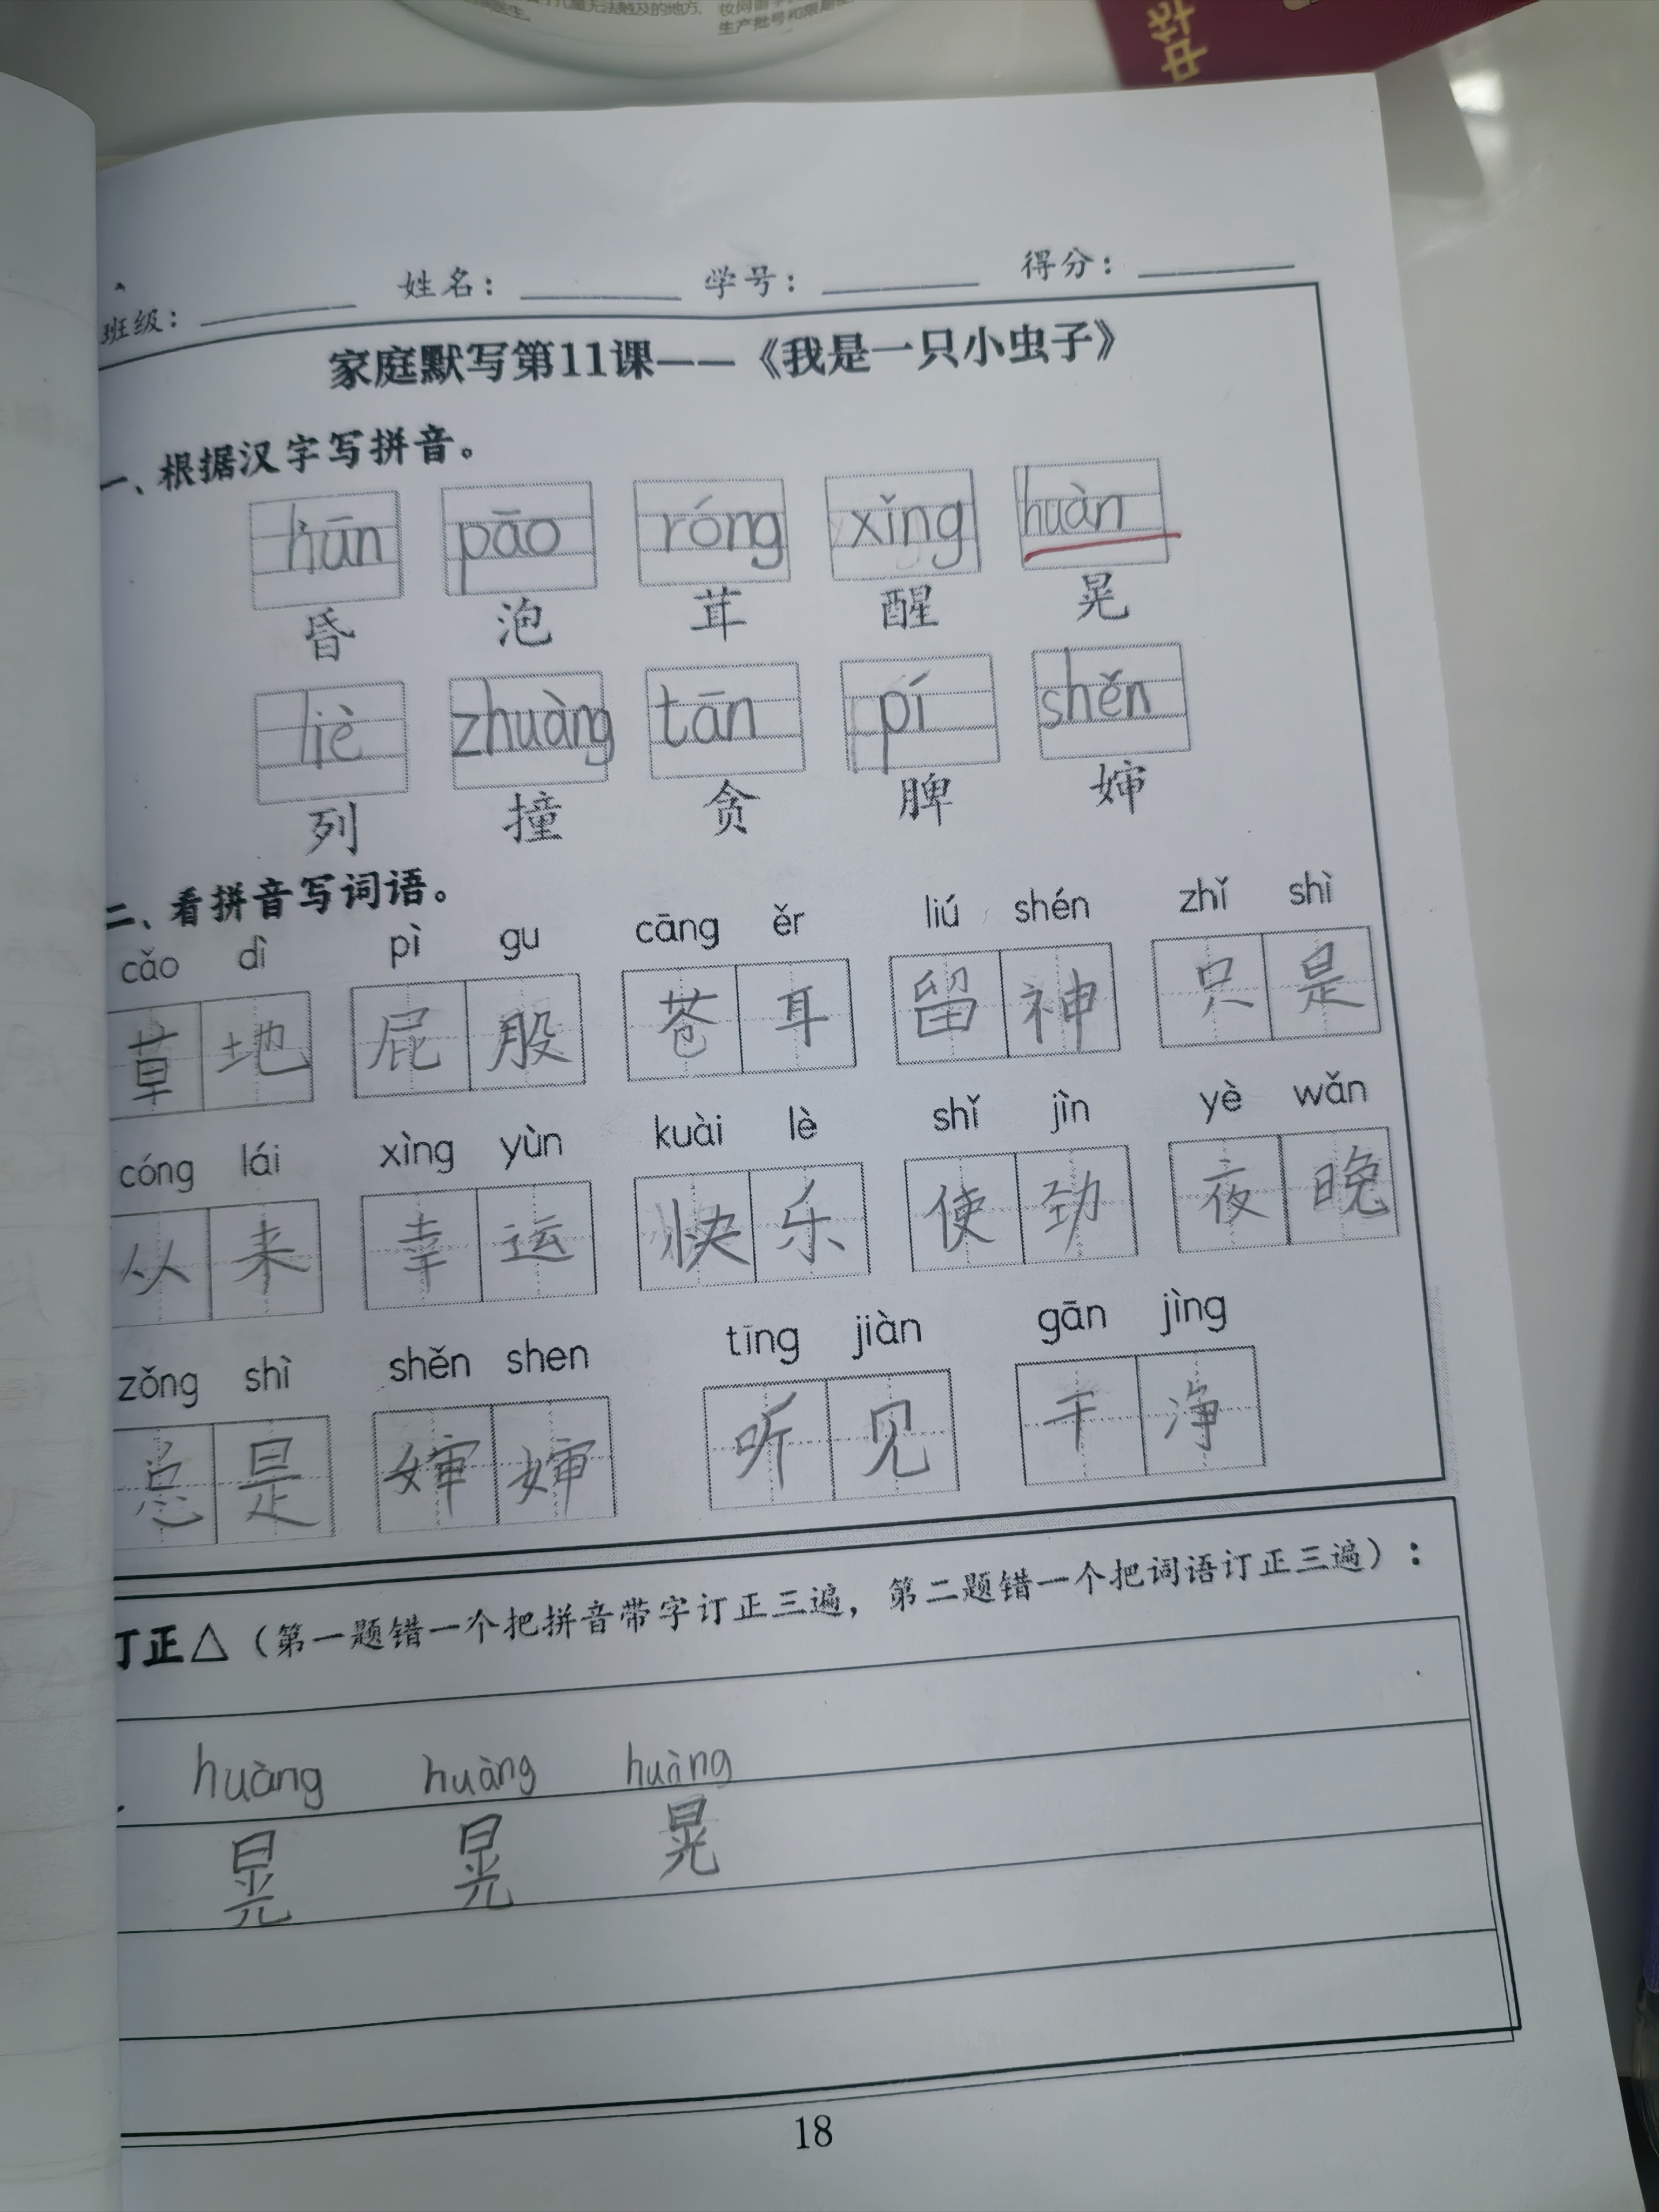 中华
生产批号和限期
班级： 姓名： 学号： 得分：
家庭默写第11课——《我是一只小虫子》
一、根据汉字写拼音。
hūn pāo róng xǐng huàn
昏 泡 茸 醒 晃
liè zhuàng tān pí shěn
列 撞 贪 脾 婶
二、看拼音写词语。
cǎo dì pì gu cāng ěr liú shén zhǐ shì
草地 屁股 苍耳 留神 只是
cóng lái xìng yùn kuài lè shǐ jìn yè wǎn
从来 幸运 快乐 使劲 夜晚
zǒng shì shěn shen tīng jiàn gān jìng
总是 婶婶 听见 干净
订正△（第一题错一个把拼音带字订正三遍，第二题错一个把词语订正三遍）：
huàng huàng huàng
晃 晃 晃
18